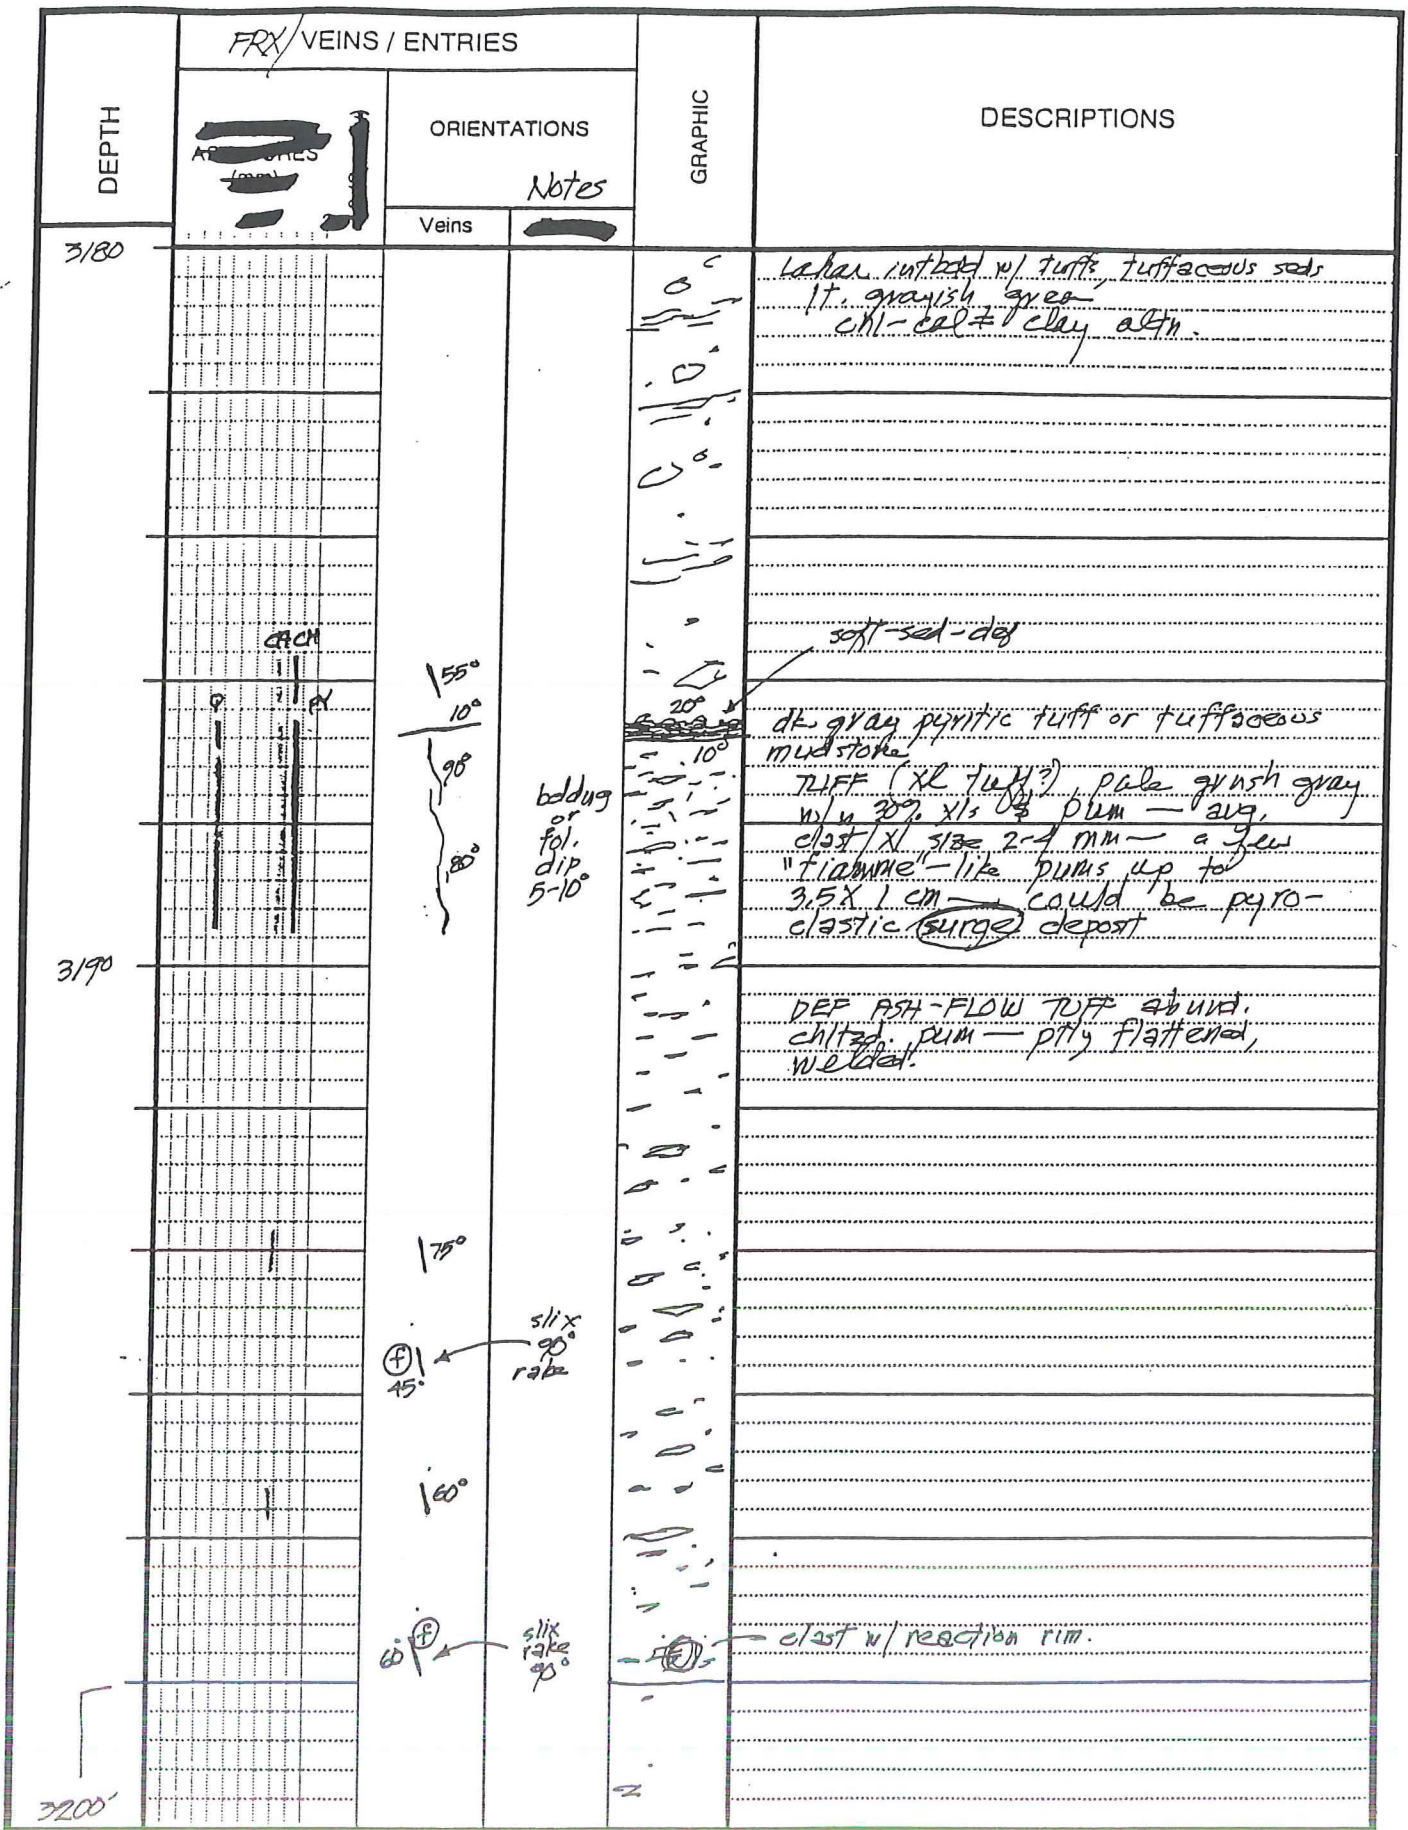 FRX/VEINS / ENTRIES
DEPTH
ORIENTATIONS
Notes
Veins
GRAPHIC
DESCRIPTIONS
3180
Lahar intbdd w/ tuffs, tuffaceous seds
lt. grayish green
chl-cal ± clay altn.
soft-sed-def
CA CH
55°
Q
PY
10°
20°
10°
dk gray pyritic tuff or tuffaceous
mudstone
90°
TUFF (xl tuff?) pale grnsh gray
w/ 30% xls & pum — avg.
clast/xl size 2-4 mm — a few
"fiamme"-like pums up to
3.5 X 1 cm — could be pyro-
clastic surge deposit
80°
bddng
or
fol.
dip
5-10°
3190
DEF ASH-FLOW TUFF abund.
chltzd. pum — ptly flattened,
welded.
75°
slix
90°
rake
f
45°
60°
f
60°
slix
rake
90°
clast w/ reaction rim.
3200'